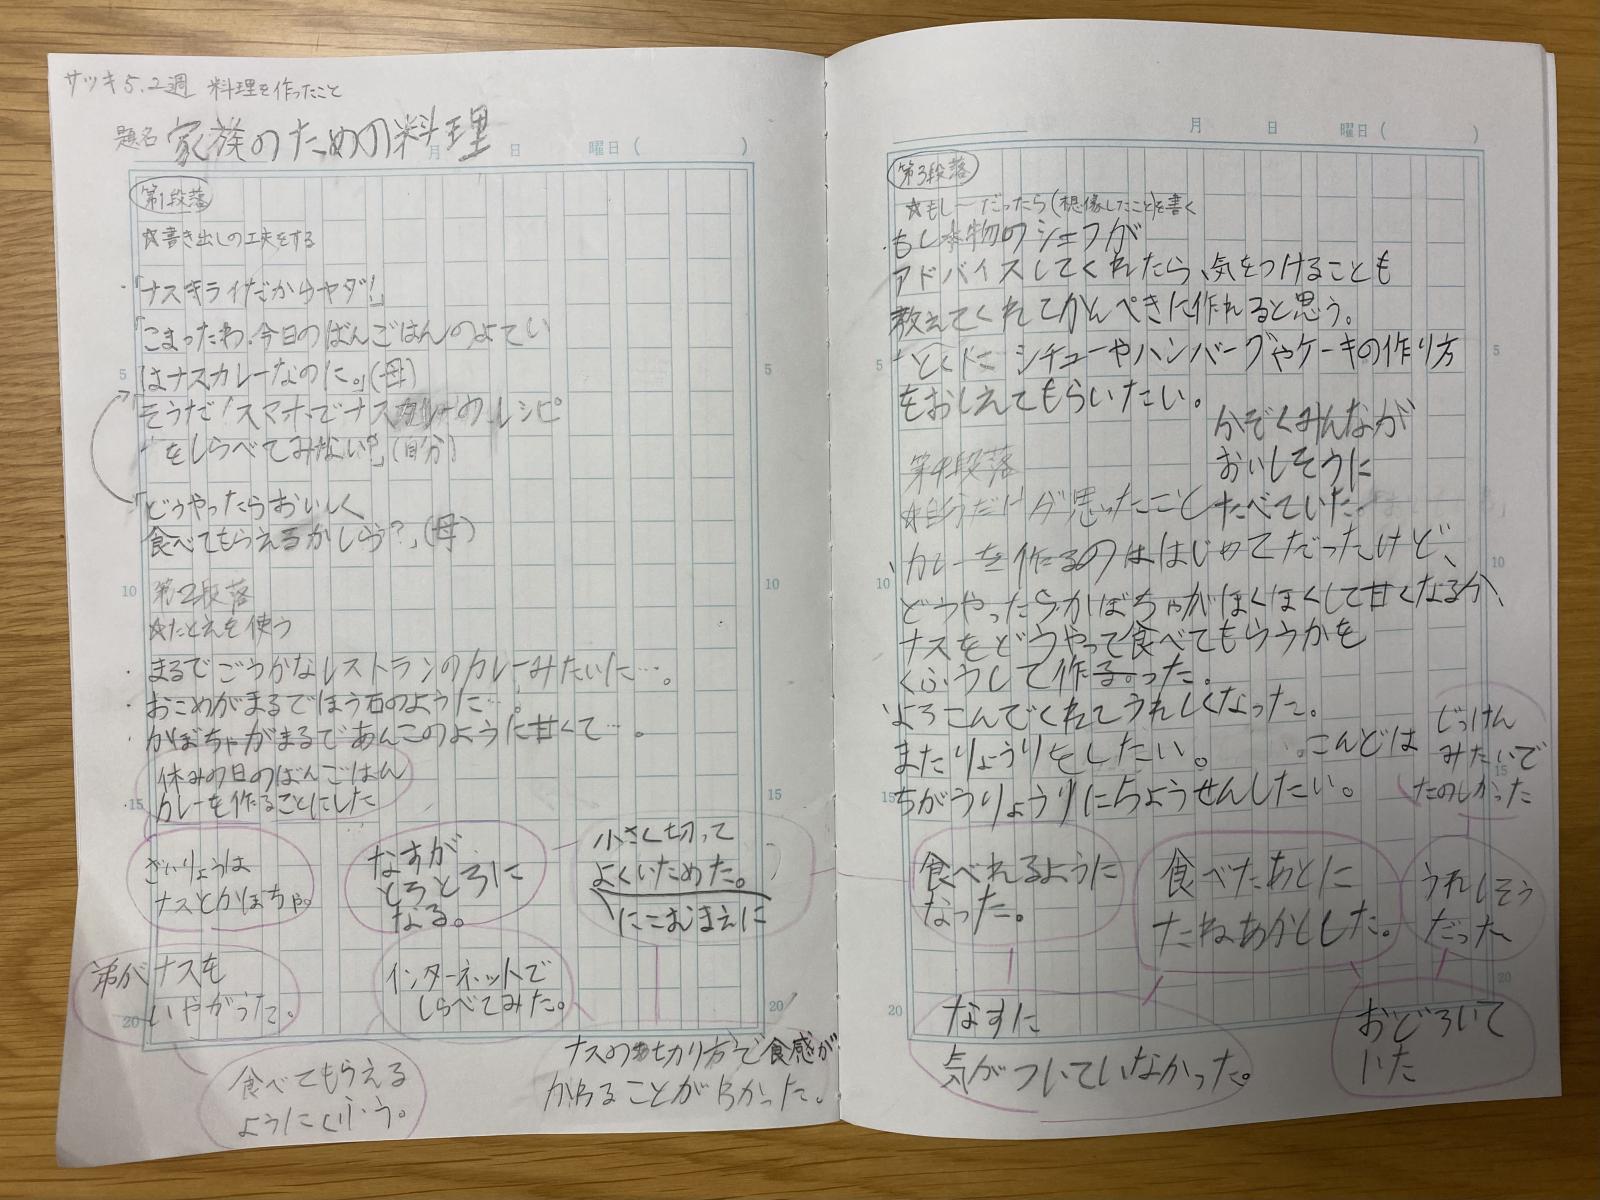 サツキ5.2週 料理を作ったこと
題名 家族のための料理
月 日 曜日( )
第1段落
☆書き出しの工夫をする
・「ナスキライだからヤダ!」
「こまったわ.今日のばんごはんのよてい
はナスカレーなのに。」(母)
「そうだ!スマホでナスカレーのレシピ
をしらべてみない?」(自分)
「どうやったらおいしく
食べてもらえるかしら?」(母)
第2段落
☆たとえを使う
・まるでごうかなレストランのカレーみたいに…。
・おこめがまるでほう石のように…。
・かぼちゃがまるであんこのように甘くて…。
休みの日のばんごはん
カレーを作ることにした
ざいりょうは
ナスとかぼちゃ。
なすが
とろとろに
なる。
小さく切って
よくいためた。
にこむまえに
弟がナスを
いやがった。
インターネットで
しらべてみた。
食べてもらえる
ようにくふう。
ナスの切り方で食感が
かわることがわかった。
5
10
15
20
5
10
15
20
月 日 曜日( )
第3段落
☆もし〜だったら(想像したこと)を書く
・もし本物のシェフが
アドバイスしてくれたら、気をつけることも
教えてくれてかんぺきに作れると思う。
・とくにシチューやハンバーグやケーキの作り方
をおしえてもらいたい。
かぞくみんなが
おいしそうに
たべていた。
第4段落
☆自分だけが思ったこと
カレーを作るのははじめてだったけど、
どうやったらかぼちゃがほくほくして甘くなるか、
ナスをどうやって食べてもらうかを
くふうして作る。った。
よろこんでくれてうれしくなった。
またりょうりをしたい。
・こんどは
ちがうりょうりにちょうせんしたい。
じっけん
みたいで
たのしかった
食べれるように
なった。
食べたあとに
たねあかしした。
うれしそう
だった
なすに
気がついていなかった。
おどろいて
いた
5
10
15
20